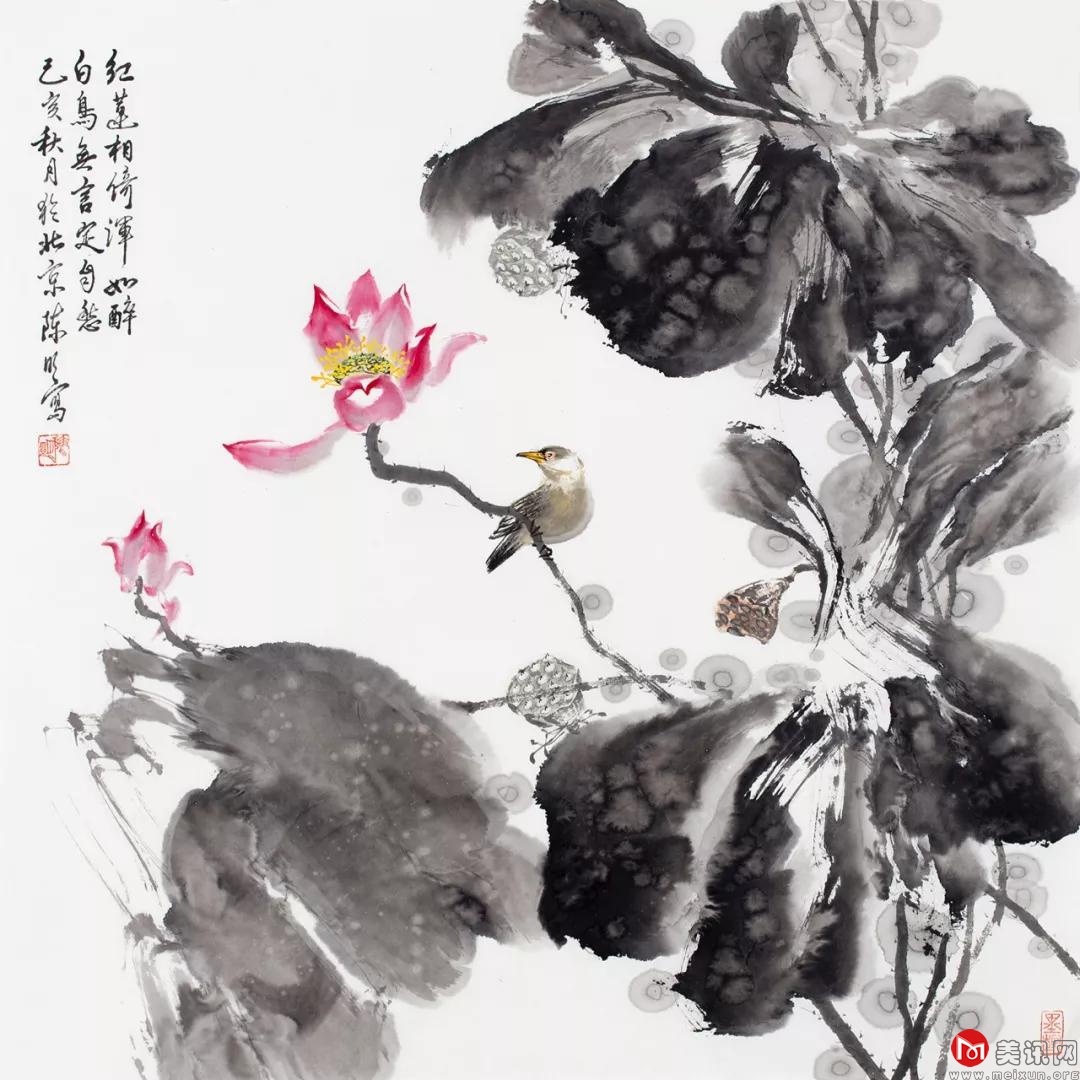 红莲相倚浑如醉
白鳥無言定自愁
己亥秋月於北京陈明寫
美讯网
www.meixun.org